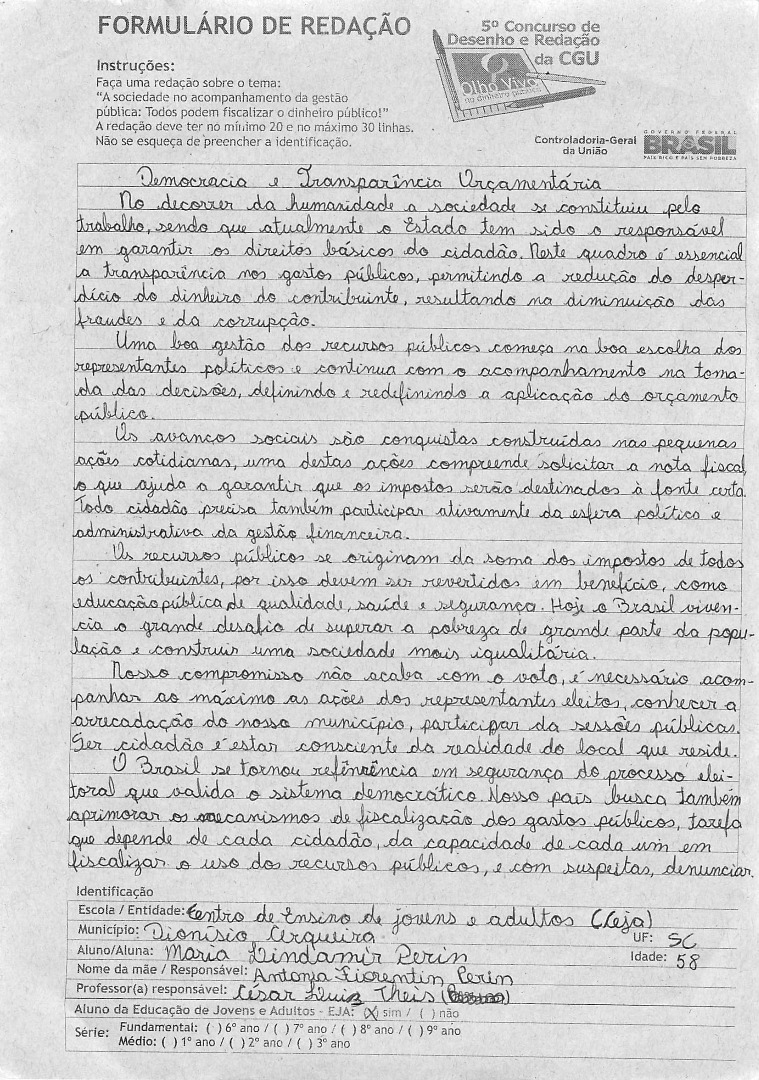 FORMULÁRIO DE REDAÇÃO
5º Concurso de
Desenho e Redação
da CGU
Olho Vivo
no dinheiro público
Instruções:
Faça uma redação sobre o tema:
"A sociedade no acompanhamento da gestão
pública: Todos podem fiscalizar o dinheiro público!"
A redação deve ter no mínimo 20 e no máximo 30 linhas.
Não se esqueça de preencher a identificação.
Controladoria-Geral
da União
GOVERNO FEDERAL
BRASIL
PAÍS RICO É PAÍS SEM POBREZA
Democracia e Transparência Orçamentária
No decorrer da humanidade a sociedade se constituiu pelo
trabalho, sendo que atualmente o Estado tem sido o responsável
em garantir os direitos básicos do cidadão. Neste quadro é essencial
a transparência nos gastos públicos, permitindo a redução do desper-
dício do dinheiro do contribuinte, resultando na diminuição das
fraudes e da corrupção.
Uma boa gestão dos recursos públicos começa na boa escolha dos
representantes políticos e continua com o acompanhamento na toma-
da das decisões, definindo e redefinindo a aplicação do orçamento
público.
Os avanços sociais são conquistas construídas nas pequenas
ações cotidianas, uma destas ações compreende solicitar a nota fiscal,
o que ajuda a garantir que os impostos serão destinados à fonte certa.
Todo cidadão precisa também participar ativamente da esfera política e
administrativa da gestão financeira.
Os recursos públicos se originam da soma dos impostos de todos
os contribuintes, por isso devem ser revertidos em benefício, como
educação pública de qualidade, saúde e segurança. Hoje o Brasil viven-
cia o grande desafio de superar a pobreza de grande parte da popu-
lação e construir uma sociedade mais igualitária.
Nosso compromisso não acaba com o voto, é necessário acom-
panhar ao máximo as ações dos representantes eleitos, conhecer a
arrecadação do nosso município, participar da sessões públicas.
Ser cidadão é estar consciente da realidade do local que reside.
O Brasil se tornou refinrência em segurança do processo elei-
toral que valida o sistema democrático. Nosso país busca também
aprimorar os mecanismos de fiscalização dos gastos públicos, tarefa
que depende de cada cidadão, da capacidade de cada um em
fiscalizar o uso dos recursos públicos, e com suspeitas, denunciar.
Identificação
Escola / Entidade: Centro de Ensino de jovens e adultos (Ceja)
Município: Dionísio Cerqueira UF: SC
Aluno/Aluna: Maria Lindamir Perin Idade: 58
Nome da mãe / Responsável: Antonia Fiorentin Perin
Professor(a) responsável: César Luiz Theis
Aluno da Educação de Jovens e Adultos - EJA: (X) sim / ( ) não
Série: Fundamental: ( ) 6º ano / ( ) 7º ano / ( ) 8º ano / ( ) 9º ano
Médio: ( ) 1º ano / ( ) 2º ano / ( ) 3º ano